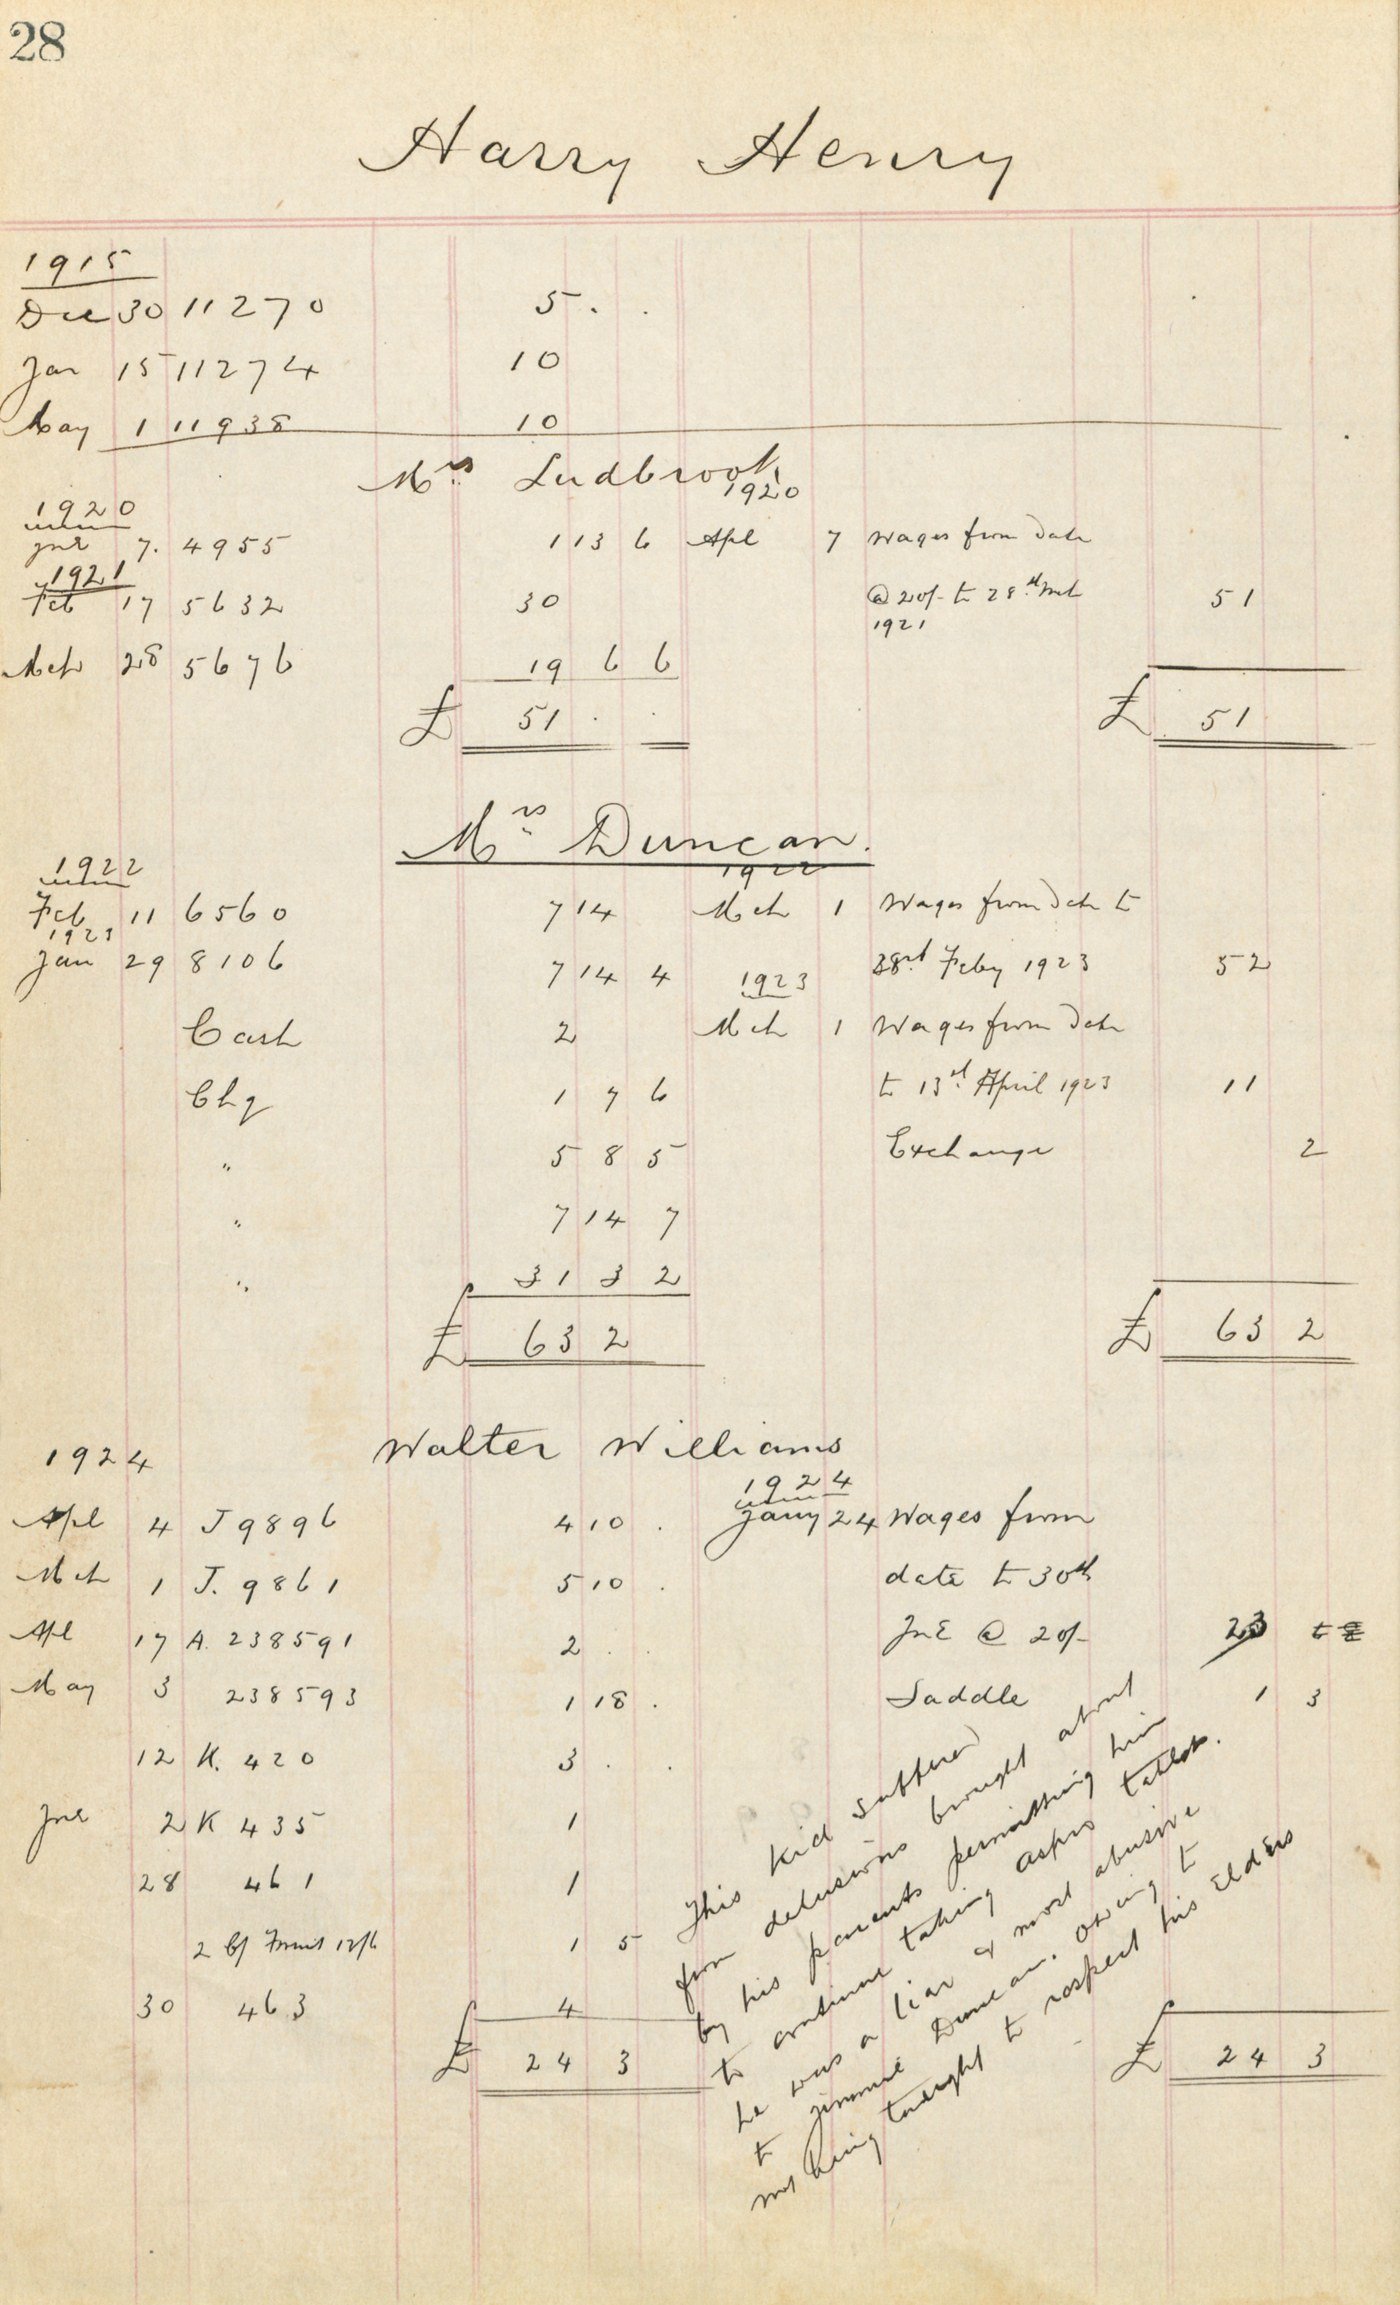 28
Harry Henry
1915
Dec 30 11270 5 . .
Jan 15 11274 10
May 1 11938 10
Mrs Ludbrook
1920 1920
Jne 7. 4955 1 13 6 Apl 7 Wages from date
1921
Feb 17 5632 30 @ 20/- to 28th Mch 51
1921
Mch 28 5676 19 6 6
£ 51 . . £ 51
Mrs Duncan.
1922 1922
Feb 11 6560 7 14 Mch 1 Wages from date to
1923
Jan 29 8106 7 14 4 28th Feby 1923 52
1923
Cash 2 Mch 1 Wages from date
Chq 1 7 6 to 13th April 1923 11
" 5 8 5 Exchange 2
" 7 14 7
" 31 3 2
£ 63 2 £ 63 2
Walter Williams
1924 1924
Apl 4 J 9896 4 10 . Jany 24 Wages from
Mch 1 J. 9861 5 10 . date to 30th
Apl 17 A. 238591 2 . . Jne @ 20/- 23
May 3 238593 1 18 . Saddle 1 3
12 K. 420 3 . .
Jne 2 K 435 1
28 461 1
2 12/6 1 5
30 463 4
£ 24 3 £ 24 3
This kid suffered
from delusions brought about
by his parents permitting him
to continue taking aspro tablets.
he was a liar & most abusive
to Jimmie Duncan. owing to
not being taught to respect his Elders